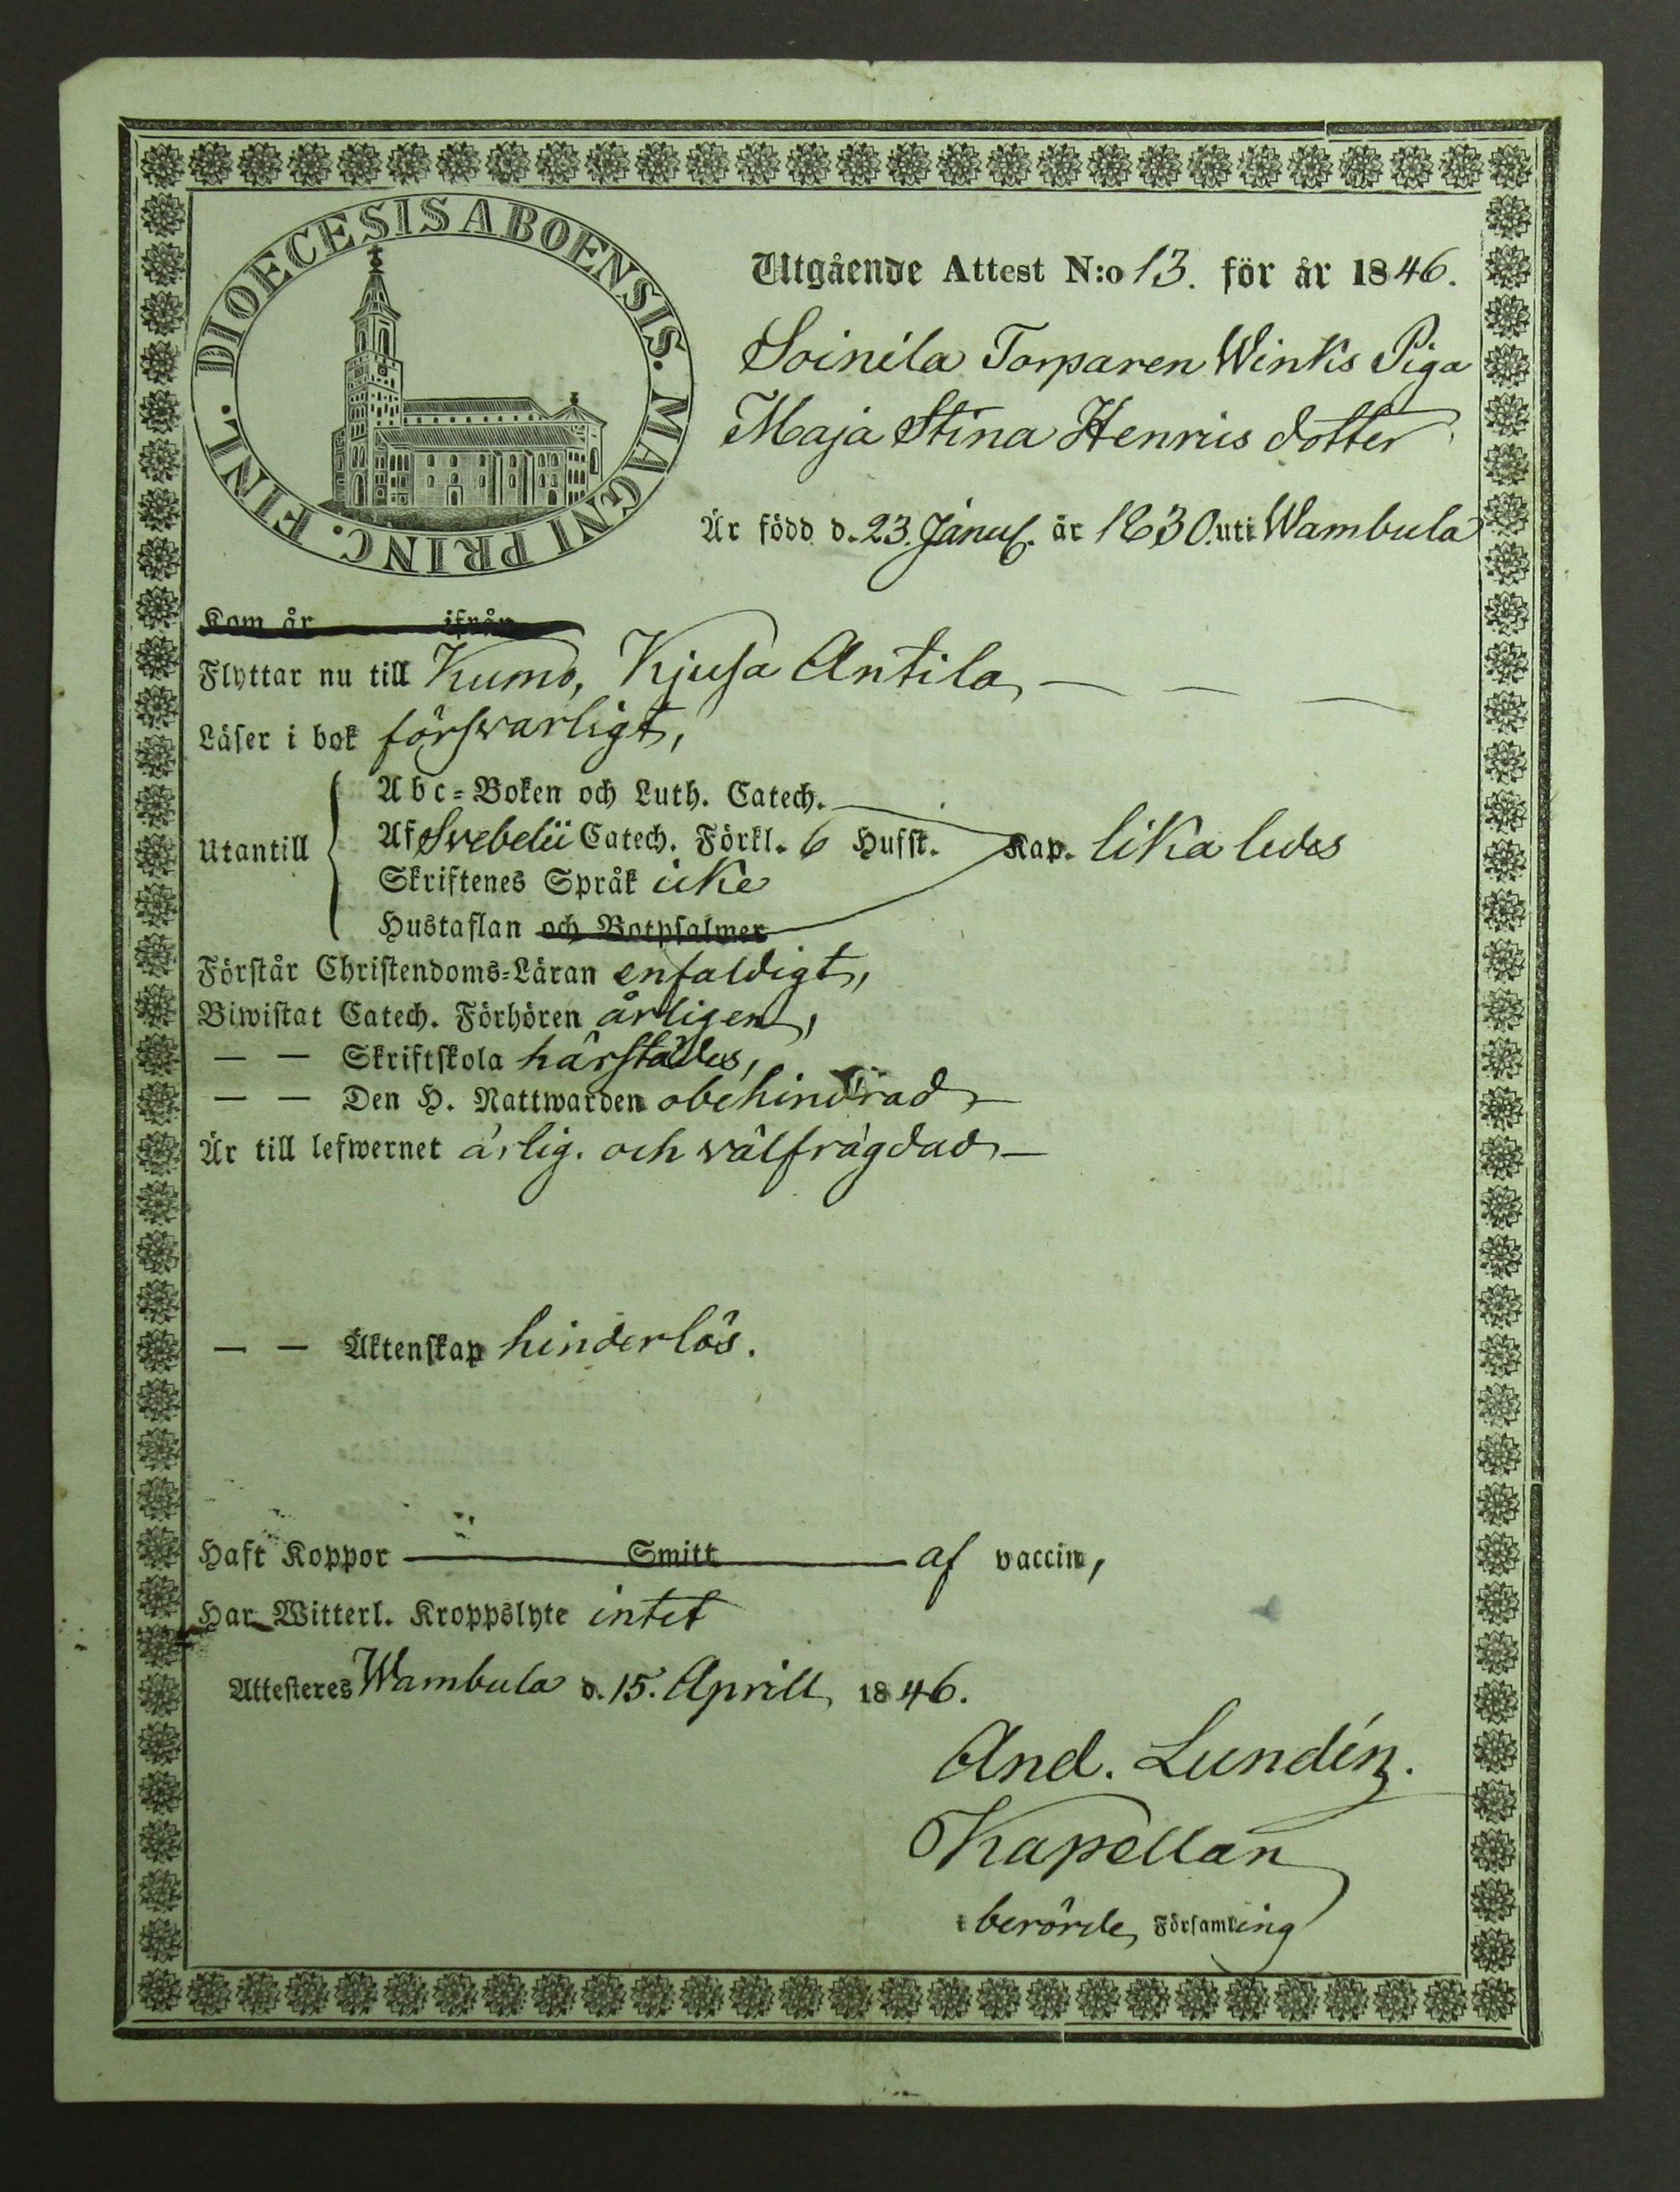 DIOECESIS ABOENSIS. MAGNI PRINC. FINL.
Utgående Attest N:o 13. för år 1846.
Soinila Torparen Winks Piga
Maja Stina Henriks dotter
Är född d. 23. Januf. år 1830. uti Wambula
Kom år ifrån
Flyttar nu till Kumo, Kjusa Antila,
Läser i bok förswarligt,
Abc-Boken och Luth. Catech.
Utantill Af Svebelii Catech. Förkl. 6 Hufst. Kap. lika ledes
Skriftenes Språk icke
Hustaflan och Botpsalmer
Förstår Christendoms-Läran enfaldigt,
Biwistat Catech. Förhören årligen,
— — Skriftskola härstädes,
— — Den H. Nattwarden obehindrad
Är till lefwernet ärlig. och välfrägdad
— — Äktenskap hinderlös.
Haft Koppor Smitt af vaccin,
Har Witterl. Kroppslyte intet
Attesteres Wambula d. 15. Aprill 1846.
And. Lundén.
Kapellan
i berörde Församling